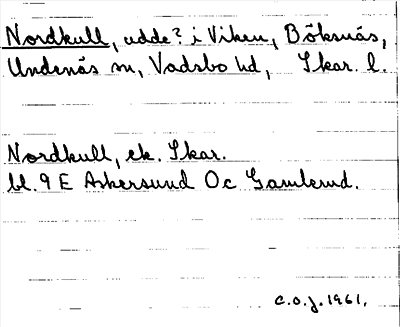 Nordkull, udde? i Viken, Böksnäs,
Undenäs sn, Vadsbo hd, Skar. l.
Nordkull, ek. Skar.
bl. 9 E Askersund Öc Gamlemd.
C.O.J. 1961.